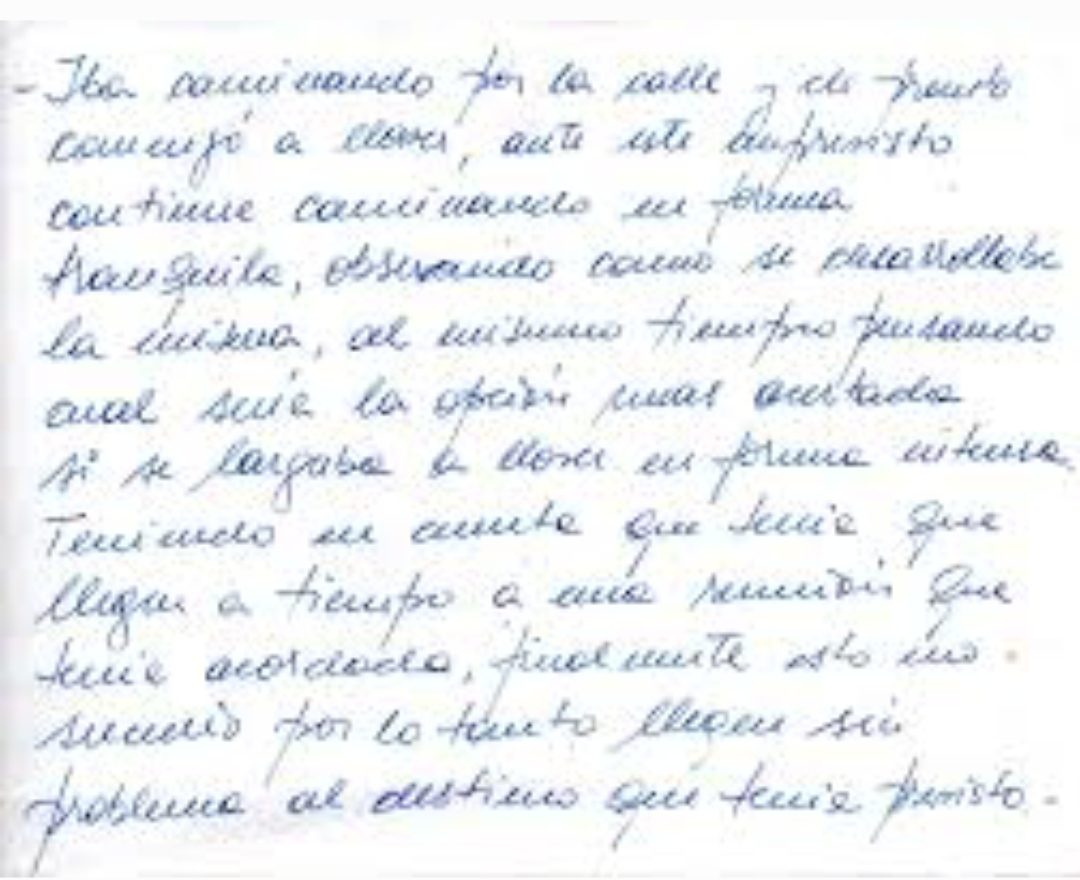 - Iba caminando por la calle y de pronto
comenzó a llover, ante este imprevisto
continue caminando en forma
tranquila, observando como se desarrollaba
la misma, al mismo tiempo pensando
cual seria la opción mas acertada
si se largaba a llover en forma intensa.
Teniendo en cuenta que tenia que
llegar a tiempo a una reunión que
tenia acordada, finalmente esto no
sucedió por lo tanto llegue sin
problema al destino que tenia previsto.-